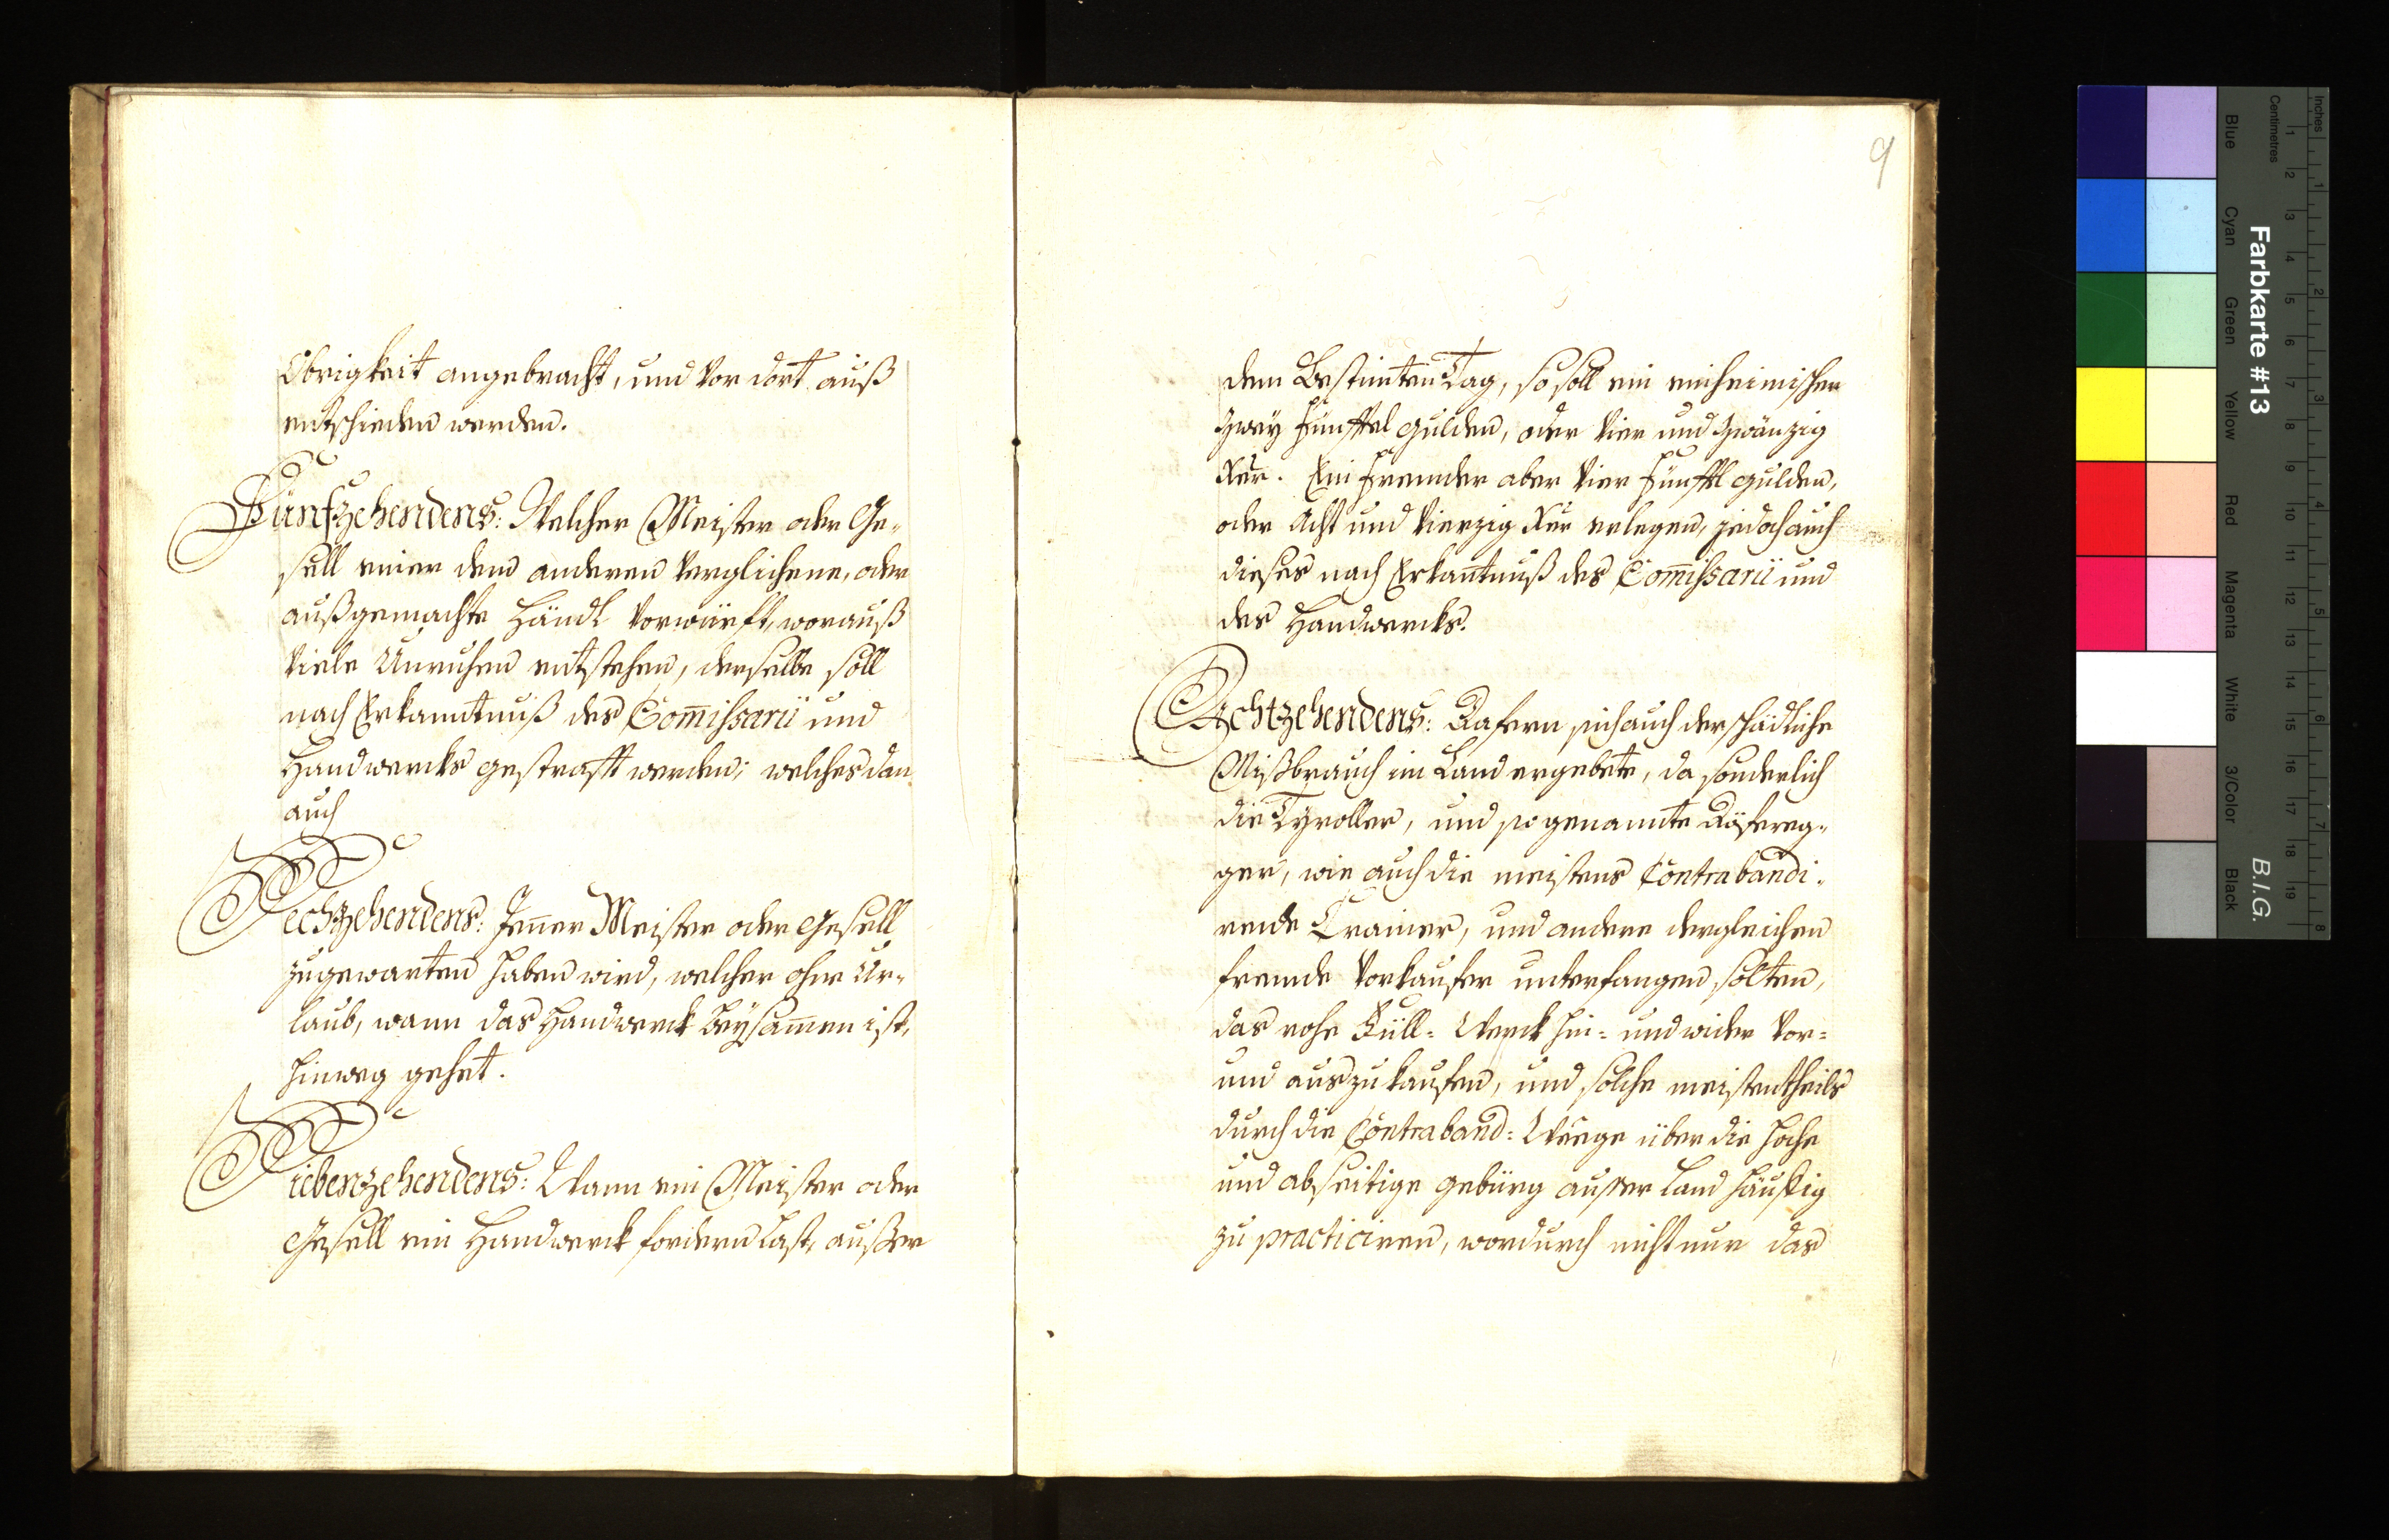 Obrigkeit angebracht, und Vor dort auß
entschieden werden.
Fünfzehendens: Welcher Meister oder Ge-
sell einer dem anderen Verglichene, oder
außgemachte Händl Vorwürfft, worauß
Viele Unruhen entstehen, derselbe soll
nach Erkanntnuß des Com̄issarii und
Handwercks gestrafft werden; welches dan
auch
Sechzehendens: Jener Meister oder Gesell
zugewarten haben wird, welcher ohne Ur-
laub, wann das Handwerck beysam̄en ist,
hinweg gehet.
Siebenzehendens: Wann ein Meister oder
Gesell ein Handwerck fordern Last, außer
9
dem Bestimten Tag, so soll ein einheimischer
Zwey Fünfftel gulden, oder Vier und Zwänzig
Xer. Ein Fremder aber Vier Fünfftl gulden,
oder Acht und Vierzig Xer erlegen, jedoch auch
dieses nach Erkan̄tnuß des Com̄issarii und
des Handwercks.
Achtzehendens: Dafern sich auch der schädliche
Mißbrauch im Land ergebete, da sonderlich
die Tyroller, und so genannte Döferegg-
ger, wie auch die meistens Contrabandi-
rende Crainer, und andere dergleichen
fremde Vorkaufer unterfangen solten,
das rohe Füll- Werck hin- und wider Vor-
und auszukaufen, und solche meistentheils
durch die Contraband- Weege über die hoche
und abseitige gebürg ausser Land häuffig
zu practiciren, wordurch nicht nur das
Farbkarte #13
B.I.G.
Inches
Centimetres
Blue
Cyan
Green
Yellow
Red
Magenta
White
3/Color
Black